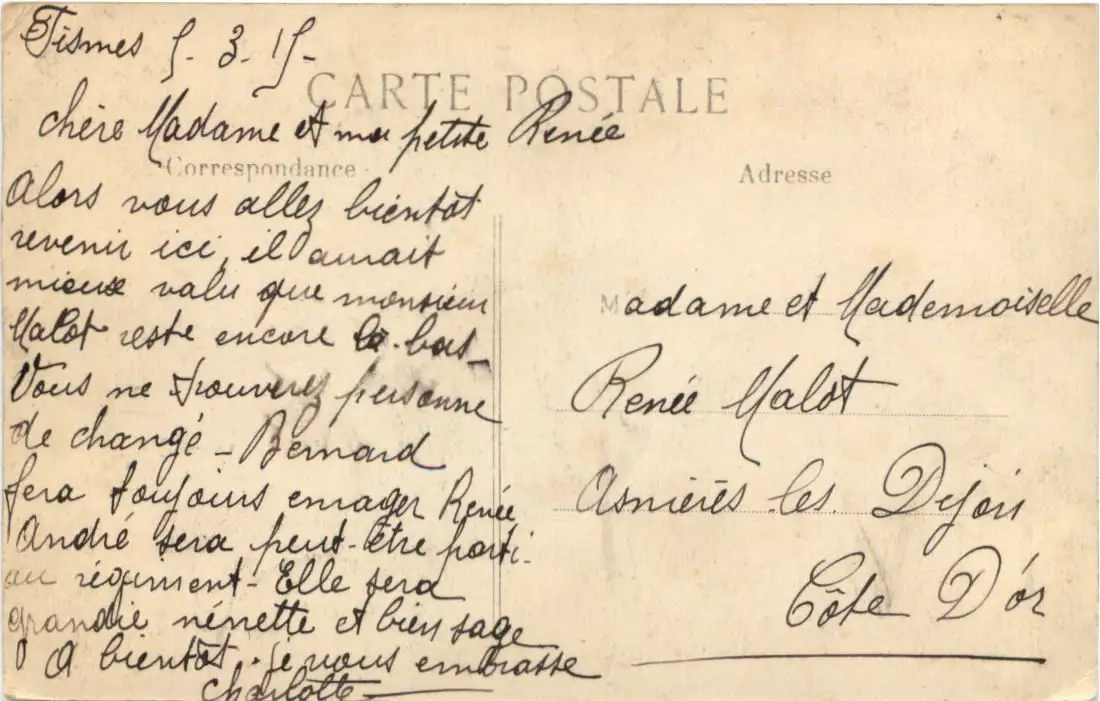 Fismes 5-3-15-
CARTE POSTALE
chère Madame et ma petite Renée
Correspondance
Adresse
Alors vous allez bientôt
revenir ici, il aurait
mieux valu que monsieur
Malot reste encore là-bas-
Vous ne trouverez personne
de changé - Bernard
fera toujours enrager Renée
André sera peut-être parti-
au régiment - Elle sera
grandie nénette et bien sage
A bientôt. je vous embrasse
Charlotte
Madame et Mademoiselle
Renée Malot
Asnières-les-Dijon
Côte D'or